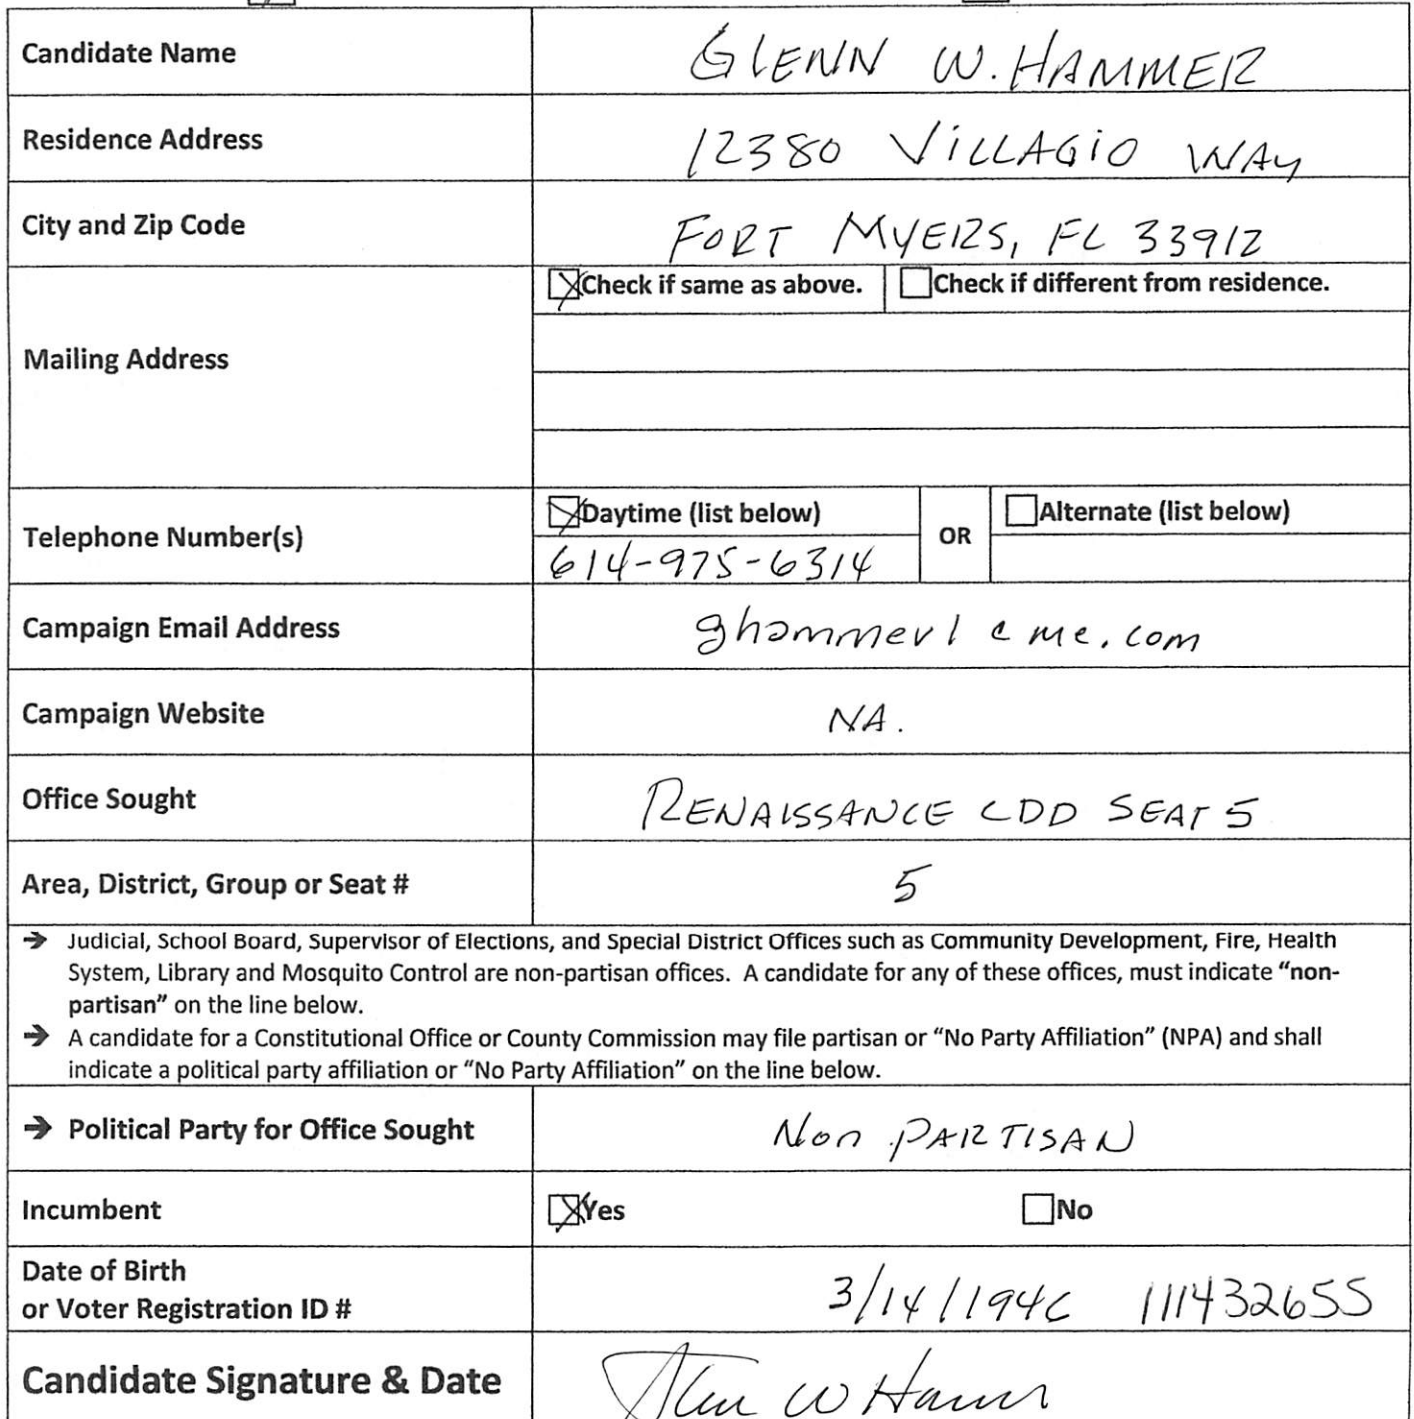 Candidate Name GLENN W. HAMMER
Residence Address 12380 VILLAGIO WAY
City and Zip Code FORT MYERS, FL 33912
Check if same as above. Check if different from residence.
Mailing Address
Daytime (list below) OR Alternate (list below)
Telephone Number(s)
614-975-6314
Campaign Email Address ghammer1 @ me.com
Campaign Website NA.
Office Sought RENAISSANCE CDD SEAT 5
Area, District, Group or Seat # 5
→ Judicial, School Board, Supervisor of Elections, and Special District Offices such as Community Development, Fire, Health
System, Library and Mosquito Control are non-partisan offices. A candidate for any of these offices, must indicate “non-
partisan” on the line below.
→ A candidate for a Constitutional Office or County Commission may file partisan or “No Party Affiliation” (NPA) and shall
indicate a political party affiliation or “No Party Affiliation” on the line below.
→ Political Party for Office Sought Non PARTISAN
Incumbent Yes No
Date of Birth
or Voter Registration ID # 3/14/1946 111432655
Candidate Signature & Date Glenn W Hammer